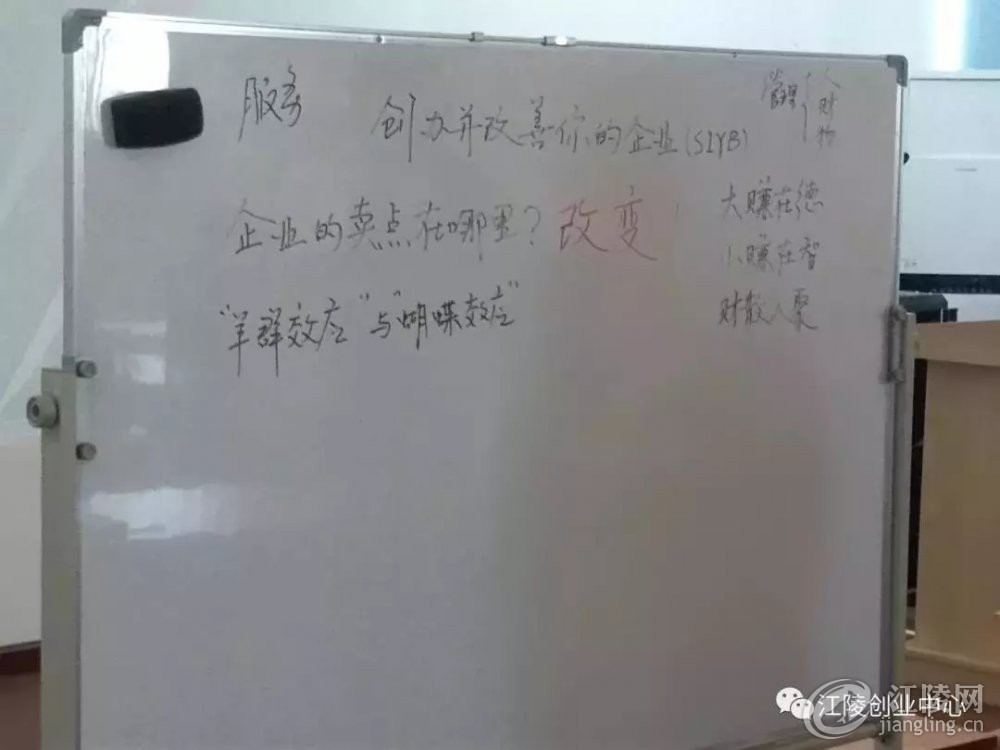 服务
创办并改善你的企业(SIYB)
管理{人
财
物
企业的卖点在哪里?改变
大赚在德
小赚在智
财散人聚
"羊群效应"与"蝴蝶效应"
江陵创业中心
江陵网
jiangling.cn